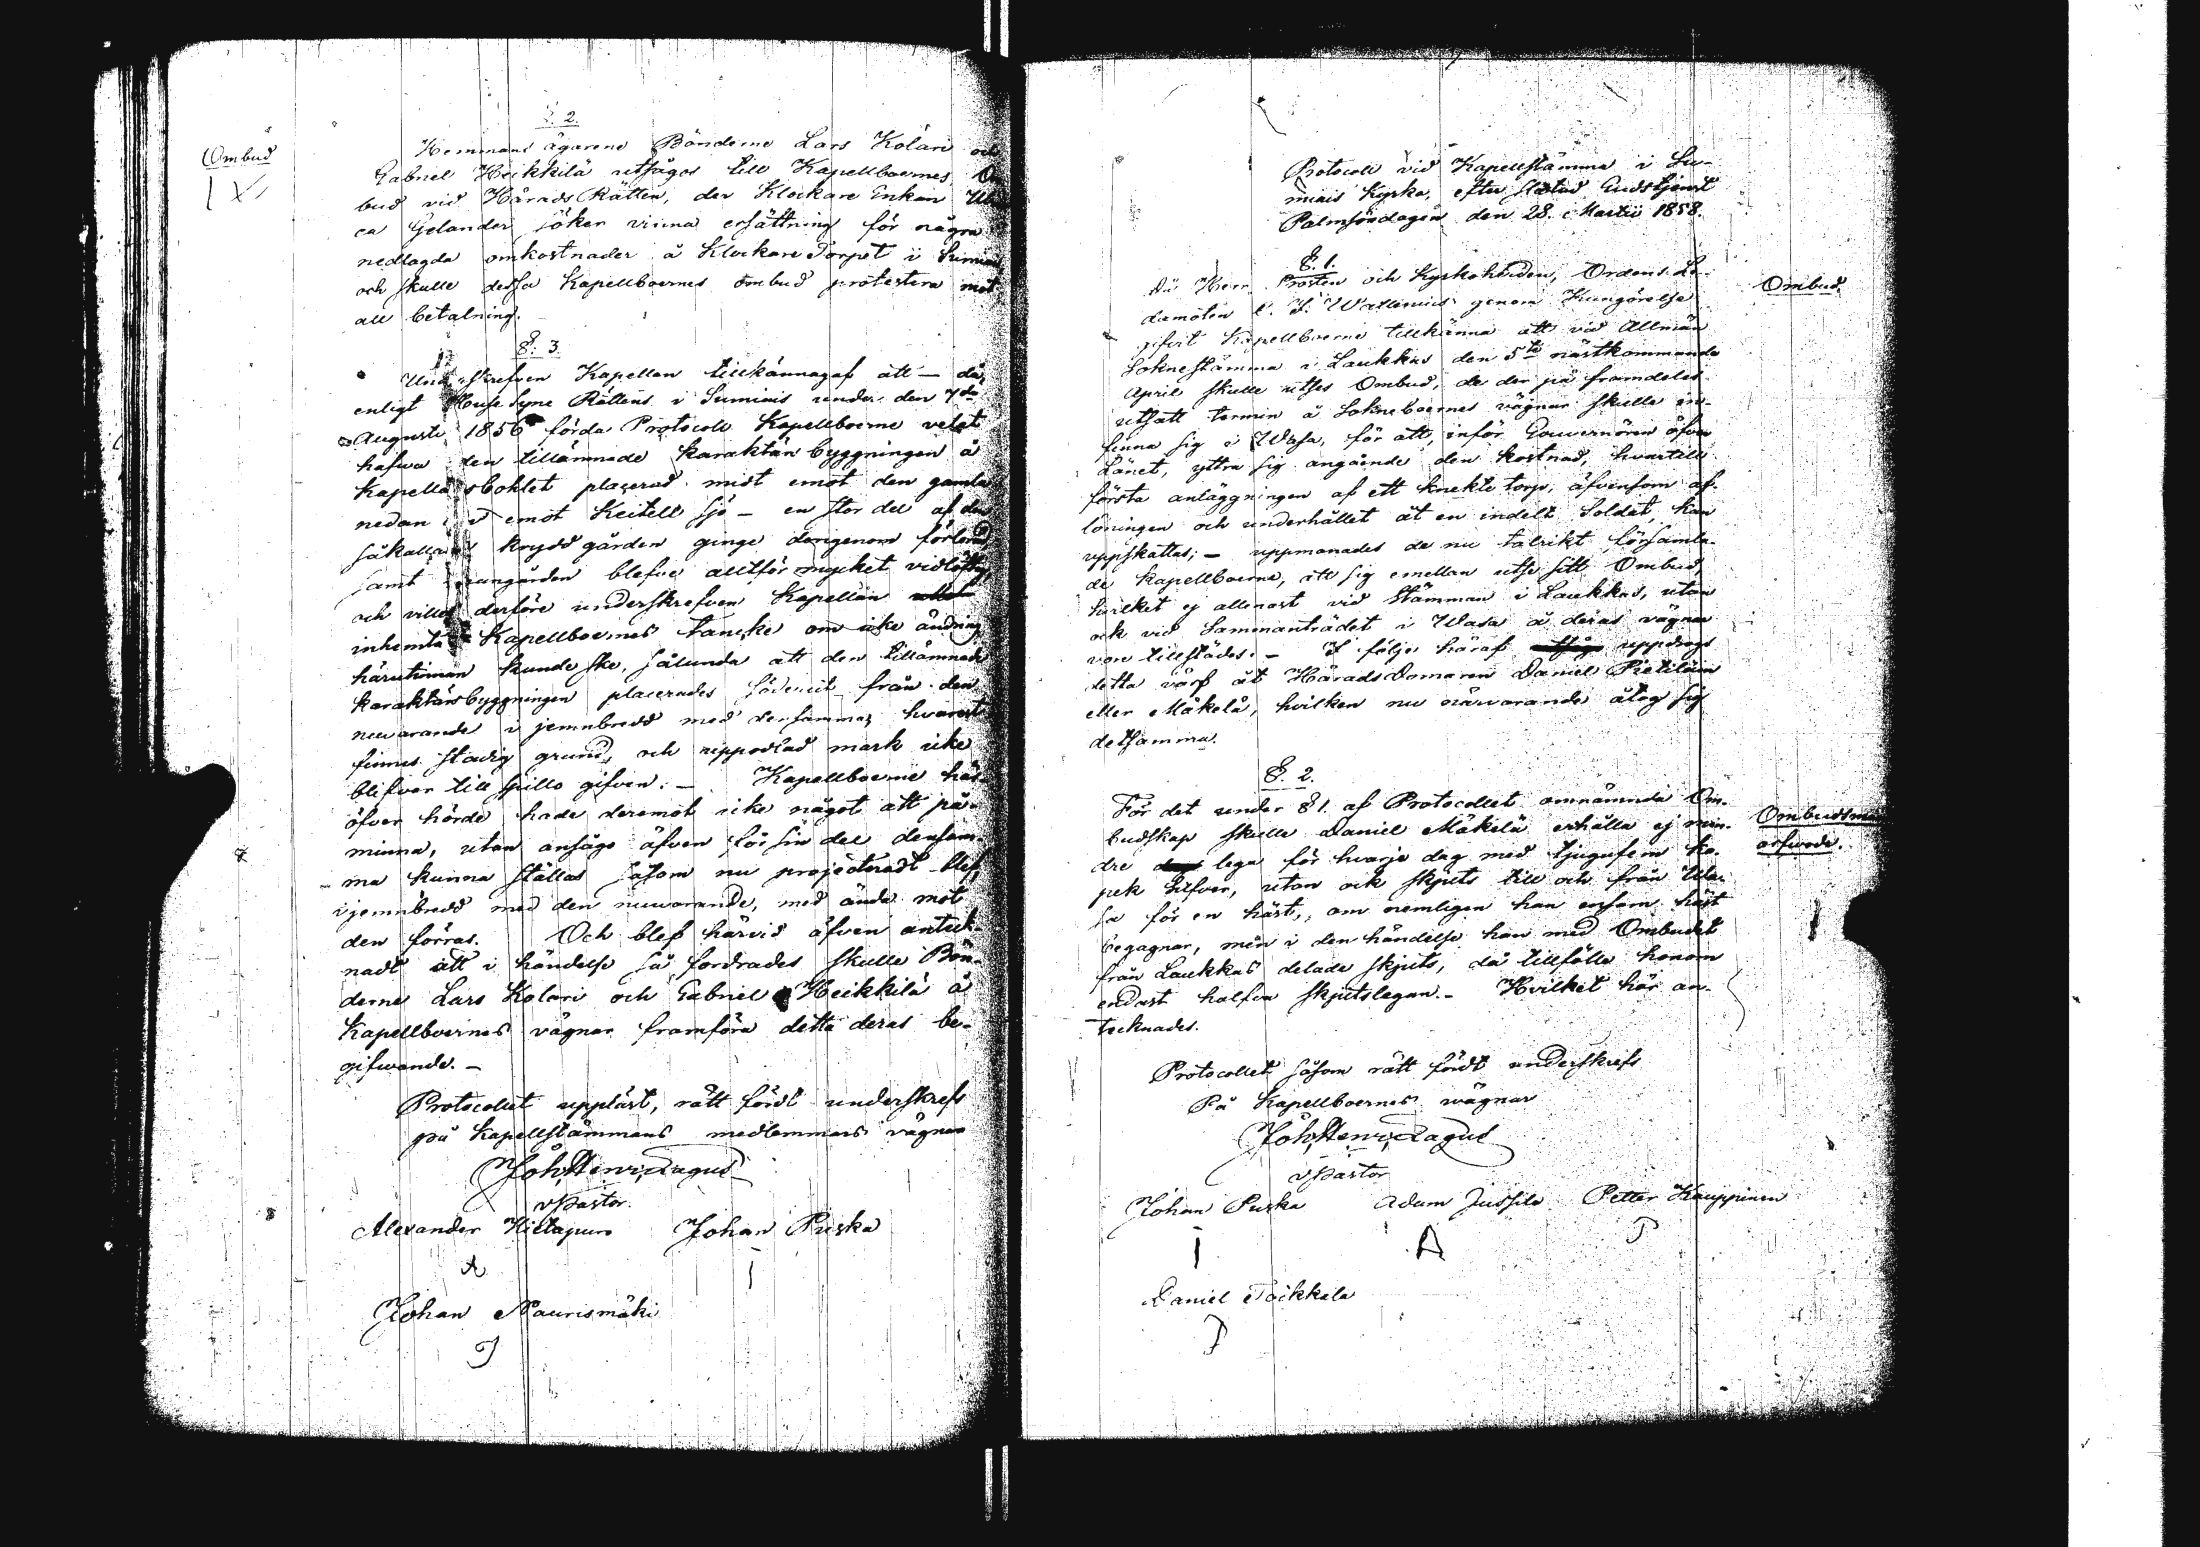 §. 2.
Ombud
Hemmans ägarene Bönderne Lars Kolari och
Gabriel Heikkilä utsågos till Kapellboernes Om
bud vid HäradsRätten, der Klockare Enkan
ca Gelander söker vinna ersättning för några
nedlagda omkostnader å Klockare Torpet i Sumiais
och skulle dessa Kapellboernes ombud protestera mot
all betalning.
§. 3.
Underskrefven Kapellan tillkännagaf att — då,
enligt Huse Syne Rättens i Sumiais under den 7de
Augusti 1856 förda Protocoll Kapellboerne velat
hafwa den tillämnade karaktärsbyggningen å
Kapellansbohlet placerad midt emot den gamla
nedan emot Keitele sjö — en stor del af den
såkallade kryddgården ginge derigenom förlorad,
samt mangården blefve alltför mycket vidlöftig,
och ville derföre underskrefven Kapellan
inhemta Kapellboernes tancke om icke ändring
härutinnan kunde ske, sålunda att den tillämnade
karaktärsbyggningen placerades söderut från den
nuvarande i jemnbredd med densamma, hvarest
finnes stadig grund, och uppodlad mark icke
blifver till spillo gifven. — Kapellboerne här-
öfver hörde hade deremot icke något att på-
minna, utan ansågo äfven för sin del densam-
ma kunna ställas såsom nu projecteradt blef,
i jemnbredd med den nuvarande, med ända mot
den förras. Och blef härvid äfven anteck-
nadt att i händelse så fordrades skulle Bön-
derne Lars Kolari och Gabriel Heikkilä å
Kapellboernes vägnar framföra detta deras be-
gifwande. —
Protocollet uppläst, rätt fördt underskrefs
på Kapellstämmans medlemmars vägnar
Joh. Henr. Lagus
vPastor.
Alexander Hietapuro Johan Puska
A I
Johan Maurismäki
J
Protocoll vid Kapellstämma i Su-
miais Kyrka, efter slutad Gudstjenst
Palmsöndagen den 28. Martii 1858.
§. 1.
Ombud.
Då Herr Prosten och Kyrkoherden, Ordens Le-
damoten C. J. Wallenius genom Kungörelse
gifvit Kapellboerne tillkänna att vid Allmän
Sokne stämma i Laukkas den 5te nästkommande
April skulle utses Ombud, de der på framdeles
utsatt termin å Sokneboernes vägnar skulle in-
finna sig i Wasa, för att, inför Gouvernören öfver
Länet, yttra sig angående den kostnad, hvartill
första anläggningen af ett knekte torp, äfvensom af-
löningen och underhållet åt en indelt Soldat, kan
uppskattas; — uppmanades de nu talrikt församla-
de Kapellboerne, att sig emellan utse sitt Ombud,
hvilket ej allenast vid Stämman i Laukkas, utan
ock vid Sammanträdet i Wasa å deras vägnar
vore tillstädes. — I följe häraf uppdrogs
detta värf åt HäradsDomaren Daniel Pietiläin
eller Mäkelä, hvilken nu närvarande åtog sig
detsamma.
§. 2.
Ombudsmans
arfwode.
För det under §1. af Protocollet omnämnda Om-
budskap skulle Daniel Mäkelä erhålla ej min-
dre lega för hvarje dag med tjugufem ko-
pek Silfver, utan ock skjuts till och från Wa-
sa för en häst, om nemligen han ensam häst
begagnar, men i den händelse han med Ombudet
från Laukkas delade skjuts, då tillfölle honom
endast halfva skjutslegan. — Hvilket här an-
tecknades.
Protocollet såsom rätt fördt underskrefs
På Kapellboernes wägnar
Joh. Henr. Lagus
vPastor
Johan Puska Adam Jussila Petter Kauppinen
I A P
Daniel Toikkala